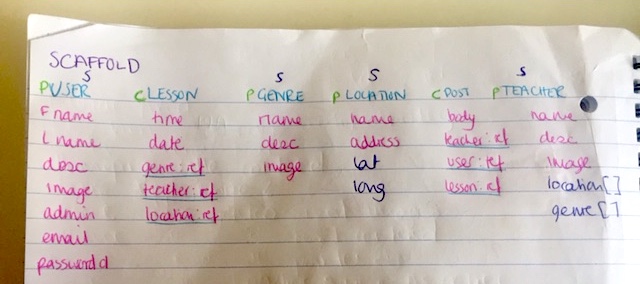 SCAFFOLD
S S S S
PUSER CLESSON PGENRE PLOCATION CPOST PTEACHER
Fname time name name body name
Lname date desc address teacher:ref desc
desc genre:ref image lat user:ref image
image teacher:ref long lesson:ref location[]
admin location:ref genre[]
email
password